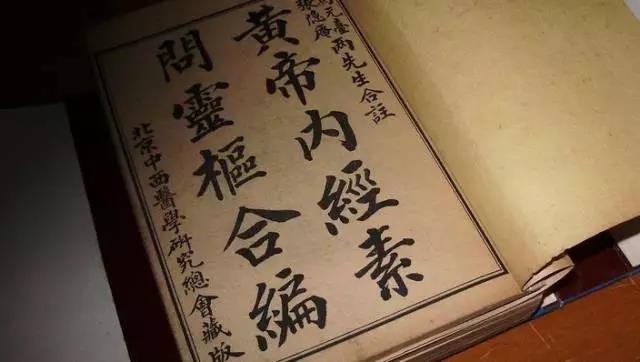 元臺兩先生合註
張隱庵
黃帝內經素
問靈樞合編
北京中西醫學研究總會藏版